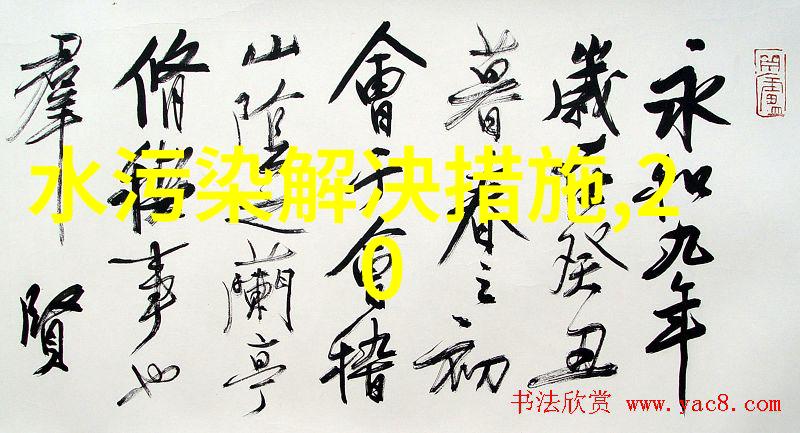 水污染解决措施,2
0
永和九年
歲在癸丑
暮春之初
會于會稽
山陰之蘭亭
脩禊事也
羣賢
书法欣赏 www.yac8.com